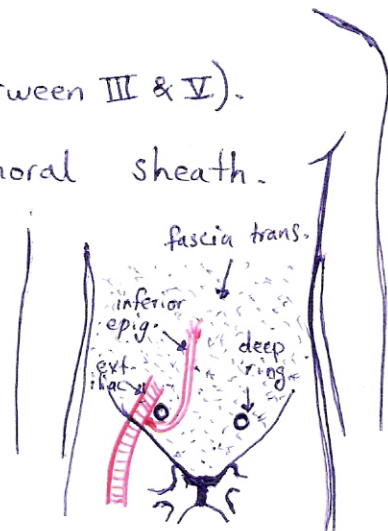 tween III & V).
noral sheath.
fascia trans.
inferior
epig.
deep
ring
ext.
iliac